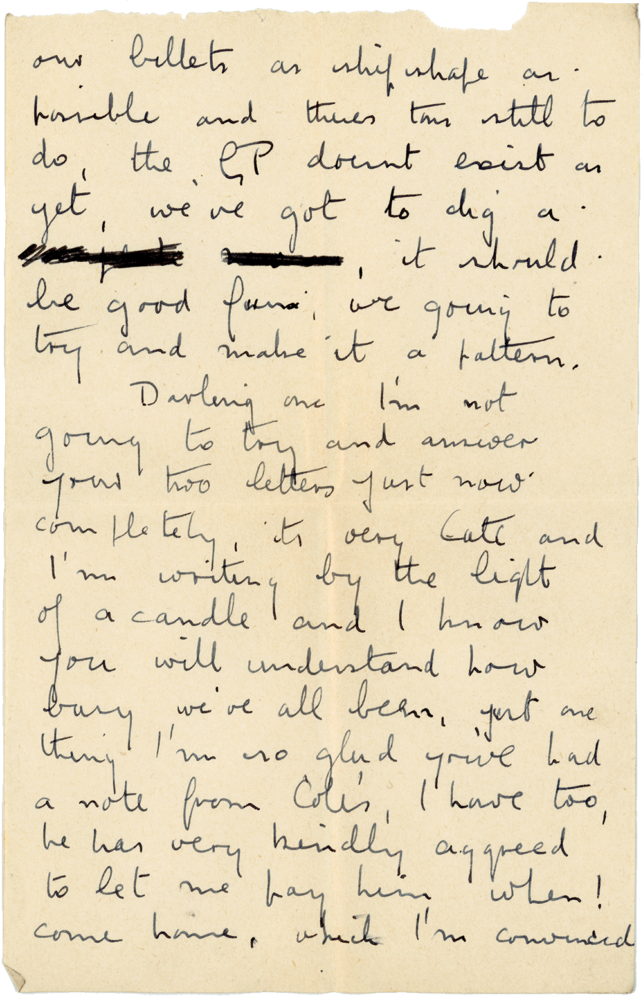 our billets as shipshape as
possible and theres tons still to
do, the GP doesnt exist as
yet, we've got to dig a
, it should
be good fun, we going to
try and make it a pattern.
Darling one I'm not
going to try and answer
your two letters just now
completely, its very late and
I'm writing by the light
of a candle and I know
you will understand how
busy we've all been, just one
thing I'm so glad you've had
a note from Coles, I have too,
he has very kindly aggreed
to let me pay him when I
come home, which I'm convinced